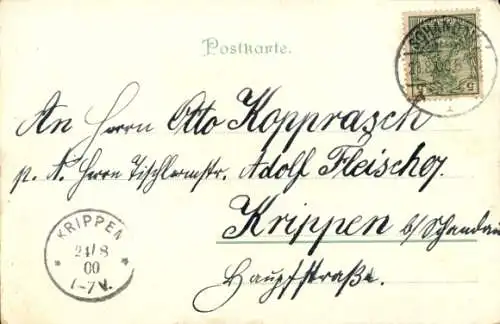 Postkarte.
SCHANDAU
An Herrn Otto Kopprasch
p. A. Herrn Tischlermstr. Adolf Fleischer.
Krippen b/Schandau
Hauptstraße.
KRIPPEN
24/8
00
1-7V.